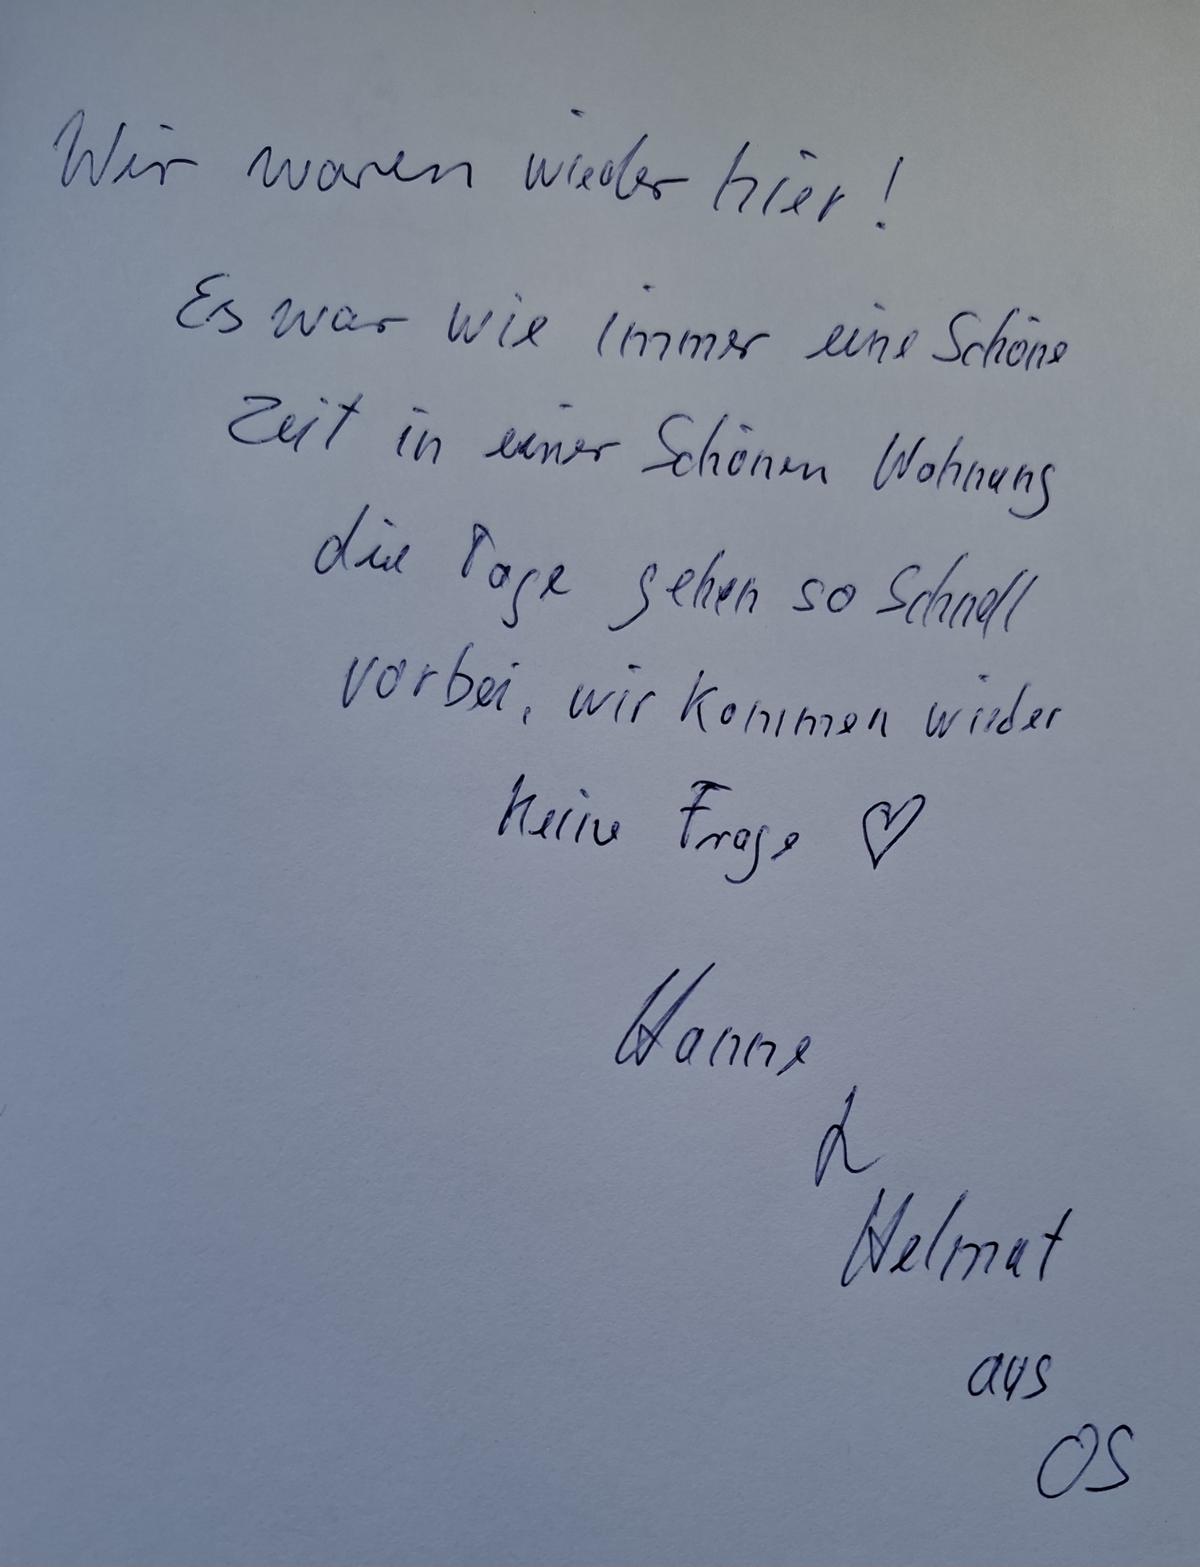 Wir waren wieder hier!
Es war wie immer eine Schöne
Zeit in einer Schönen Wohnung
die Tage gehen so Schnell
vorbei, wir kommen wieder
keine Frage ♡
Hanne
&
Helmut
aus
OS